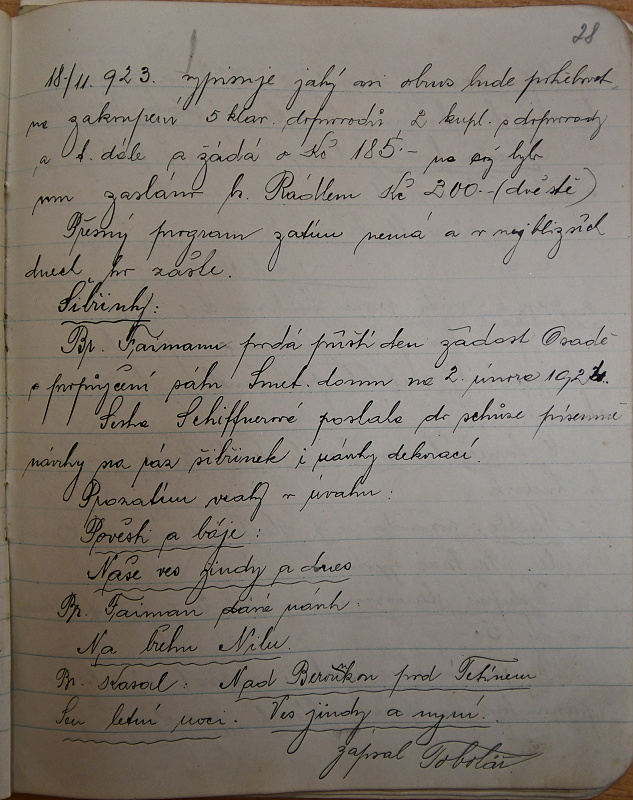 28
18./11. 923. vypisuje jaký asi obnos bude potřebovat
na zakoupení 5 klav. doprovodů 2 kupl. s doprovody
a t. dále a žádá o Kč 185.- na bylo
mu zasláno br. Rádlem Kč 200.- (dvěstě)
Přesný program zatím nemá a v nejbližších
dnech ho zašle.
Šibřinky:
Br. Faiman podá příští den žádost Osadě
o propůjčení sálu Smet. domu na 2. února 192
Sestra Schiffnerová poslala do schůze písemné
návrhy na ráz šibřinek i návrhy dekorací.
Prozatím vzaty v úvahu:
Pověsti a báje:
Naše ves jindy a dnes
Br. Faiman dává návrh:
Na břehu Nilu.
Br. Kasal: Nad Berounkou pod Tetínem
Sen letní noci. Ves jindy a nyní.
zapsal Tobolář